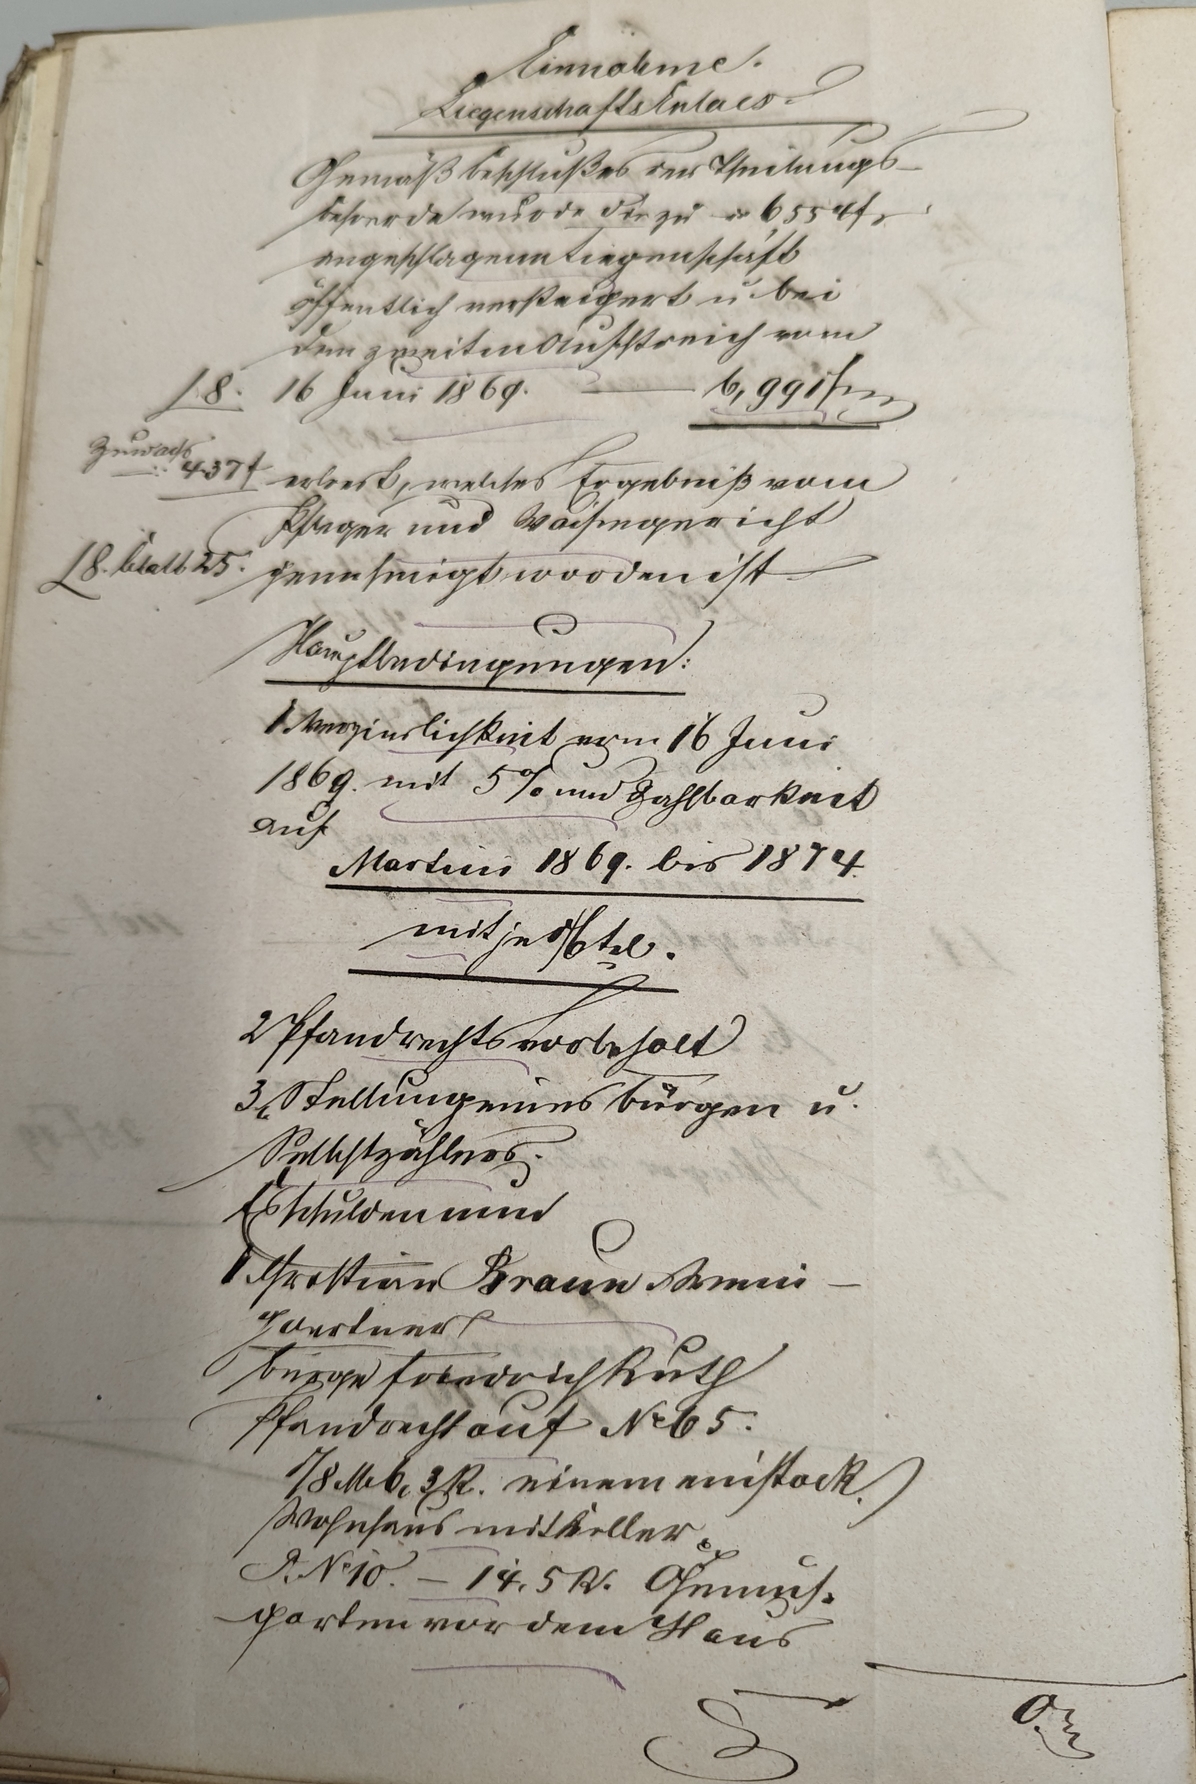 Einnahme.
Liegenschafts Erlaes.
Gemäß Beschlußes der Theilungs-
behoerde wurde die zu 6554 f
angeschlagene Liegenschaft
öffentlich versteigert u. bei
dem zweiten Aufstreich vom
18. 16 Juni 1869. — 6,991 f
Zuwachs
437 f erloest, welches Ergebniß vom
Pfleger und Waisengericht
18. Blatt 25. genehmigt worden ist
Hauptbedingungen:
1. Verzinslichkeit vom 16 Juni
1869. mit 5 % und Zahlbarkeit
auf
Martini 1869. bis 1874.
mit je 1/6tel.
2 Pfandrechtsvorbehalt
3, Stellung eines Bürgen u.
Selbstzählers.
Es schulden nun
1 Christian Braun Wein-
gaertner
Bürge Friedrich Kuth
Pfandrecht auf No 65.
1/8 M 6,3 R. einem einstock.
Wohnhaus mit Keller
P. No 10. — 14,5 R. Gemüs-
garten vor dem Haus